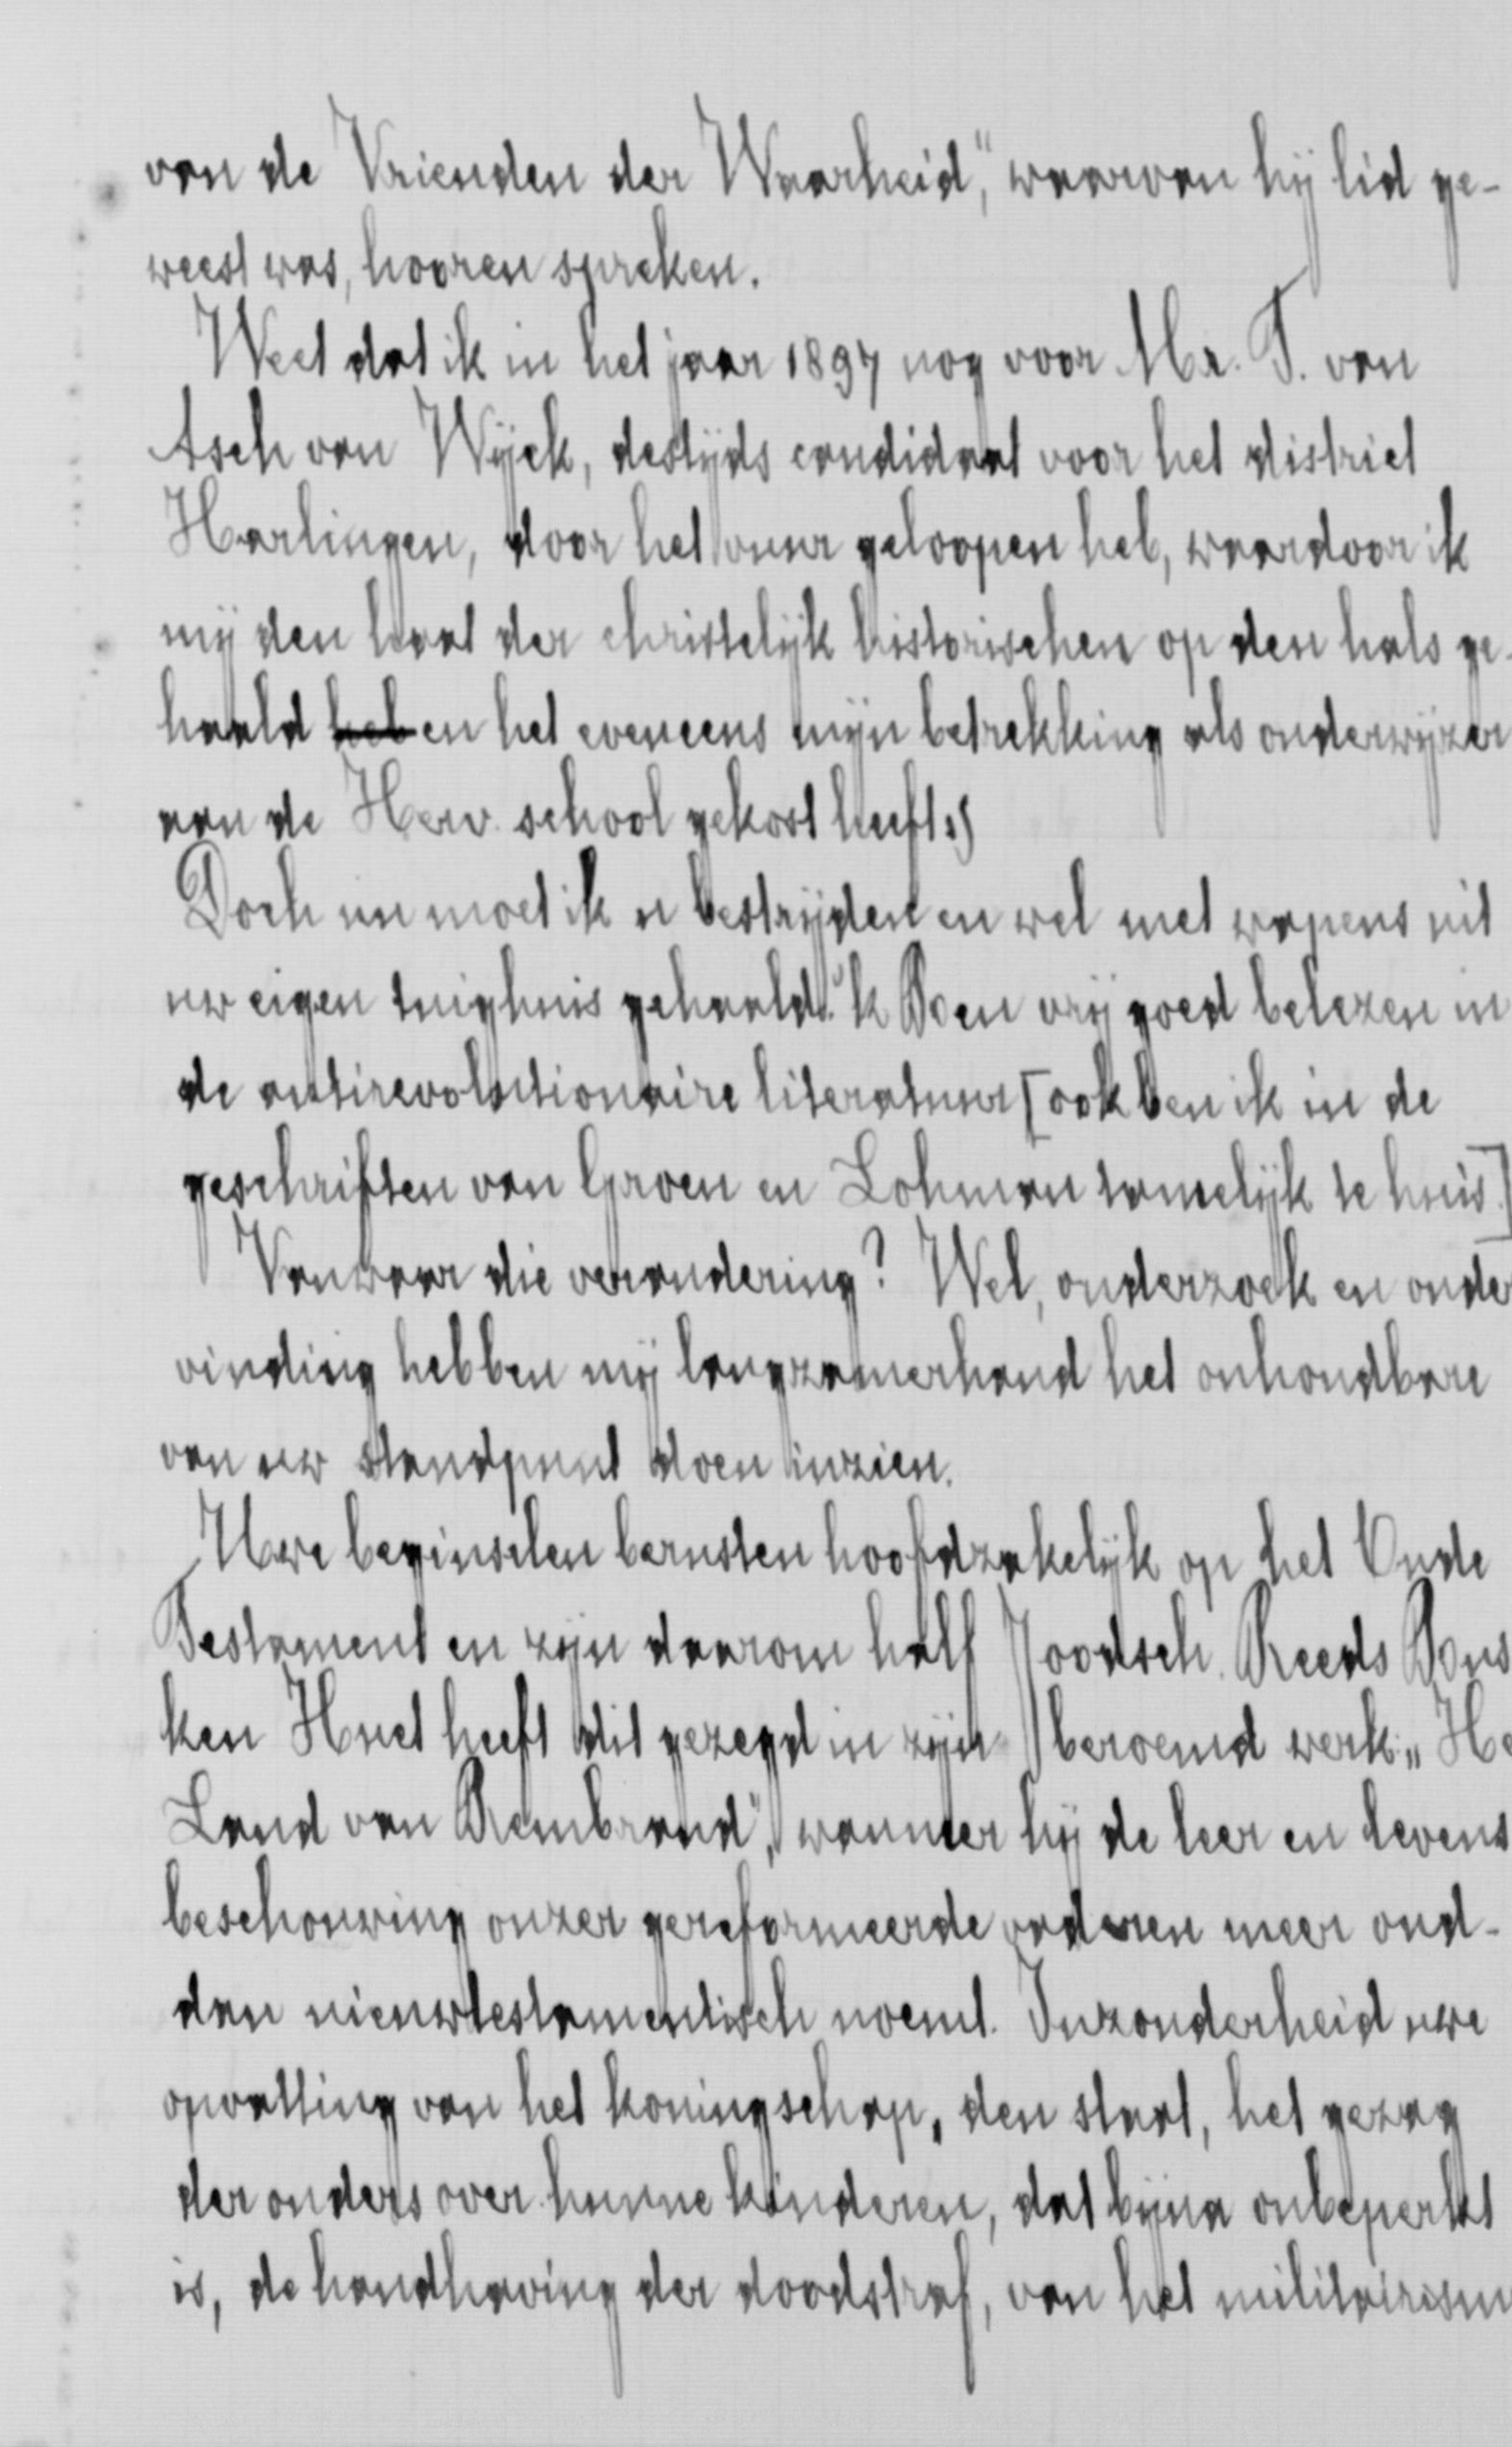 van de Vrienden der Waarheid", waarvan hij lid ge-
weest was, hooren spreken.
Weet dat ik in het jaar 1897 nog voor Mr. T. van
Asch van Wijck, destijds candidaat voor het district
Harlingen, door het vuur geloopen heb, waardoor ik
mij den haat der christelijk historischen op den hals ge-
haald heb en het eveneens mijn betrekking als onderwijzer
aan de Herv. school gekost heeft.)
Doch nu moet ik u bestrijden en wel met wapens uit
uw eigen tuighuis gehaald. 'k Ben vrij goed belezen in
de antirevolutionaire literatuur [ook ben ik in de
geschriften van Groen en Lohman tamelijk te huis.]
Vanwaar die verandering? Wel, onderzoek en onder
vinding hebben mij langzamerhand het onhoudbare
van uw standpunt doen inzien.
Uwe beginselen berusten hoofdzakelijk op het Oude
Testament en zijn daarom half Joodsch. Reeds Bus
ken Huet heeft dit gezegd in zijn beroemd werk: „He
Land van Rembrand", wanneer hij de leer en levens
beschouwing onzer gereformeerde vaderen meer oud-
dan nieuwtestamentisch noemt. Inzonderheid uwe
opvatting van het koningschap, den staat, het gezag
der ouders over hunne kinderen, dat bijna onbeperkt
is, de handhaving der doodstraf, van het militairism